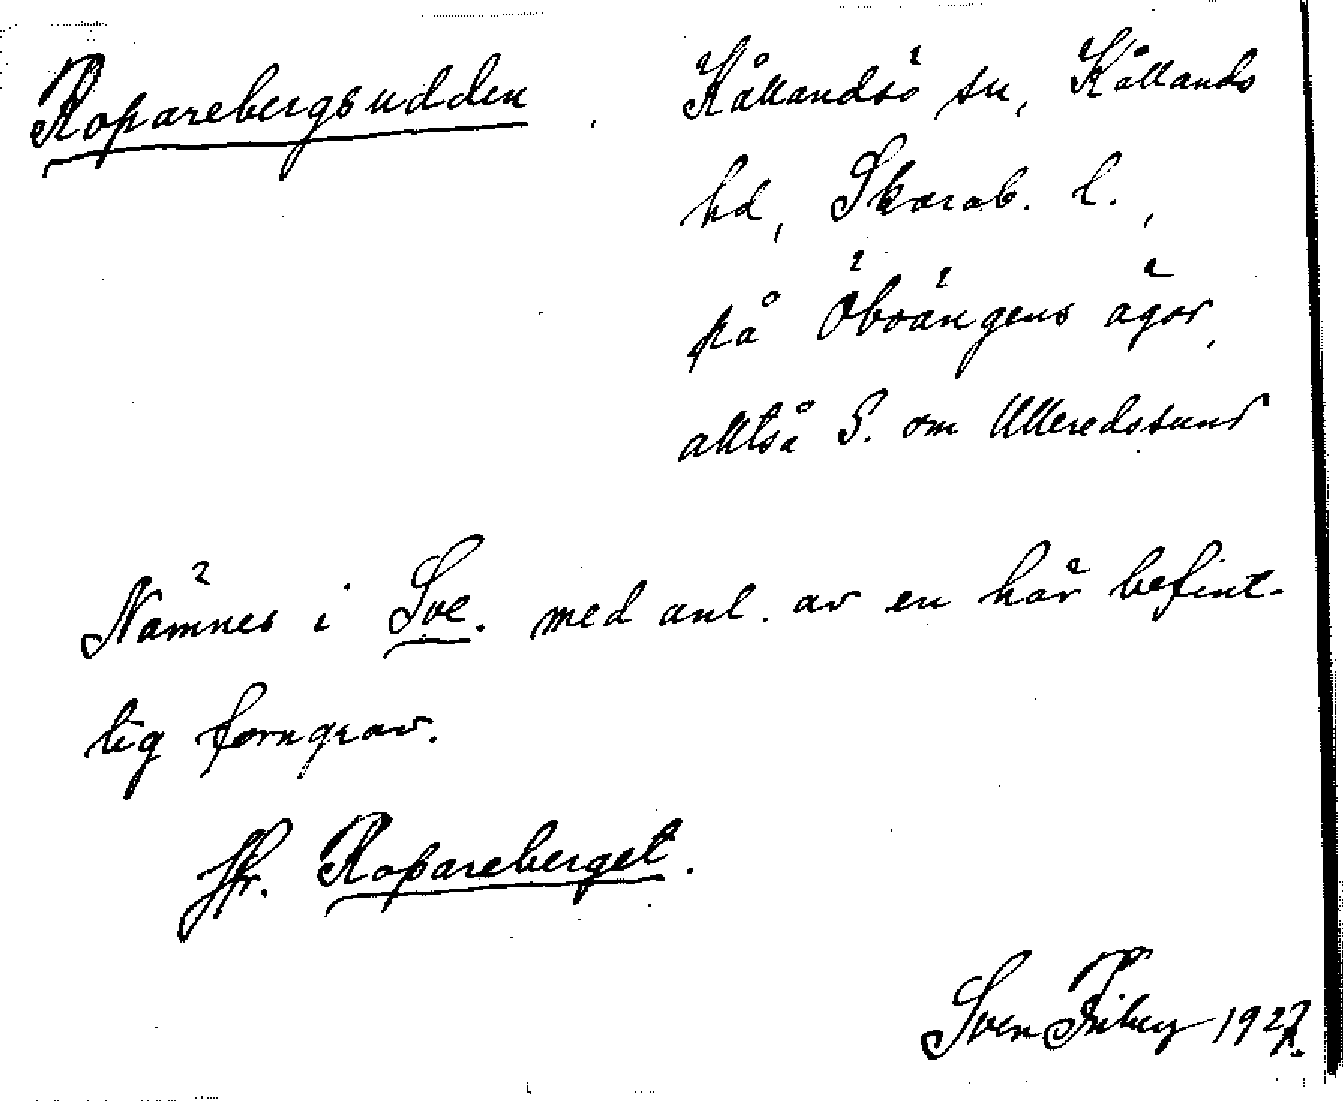 Roparebergsudden. Kållandsö sn, Kållands
hd, Skarab. l.,
på Öboängens ägor,
alltså S. om Ulleredssund
Nämnes i Soe. med anl. av en här befint-
lig forngrav.
Jfr. Ropareberget.
Sven Friberg 1927.